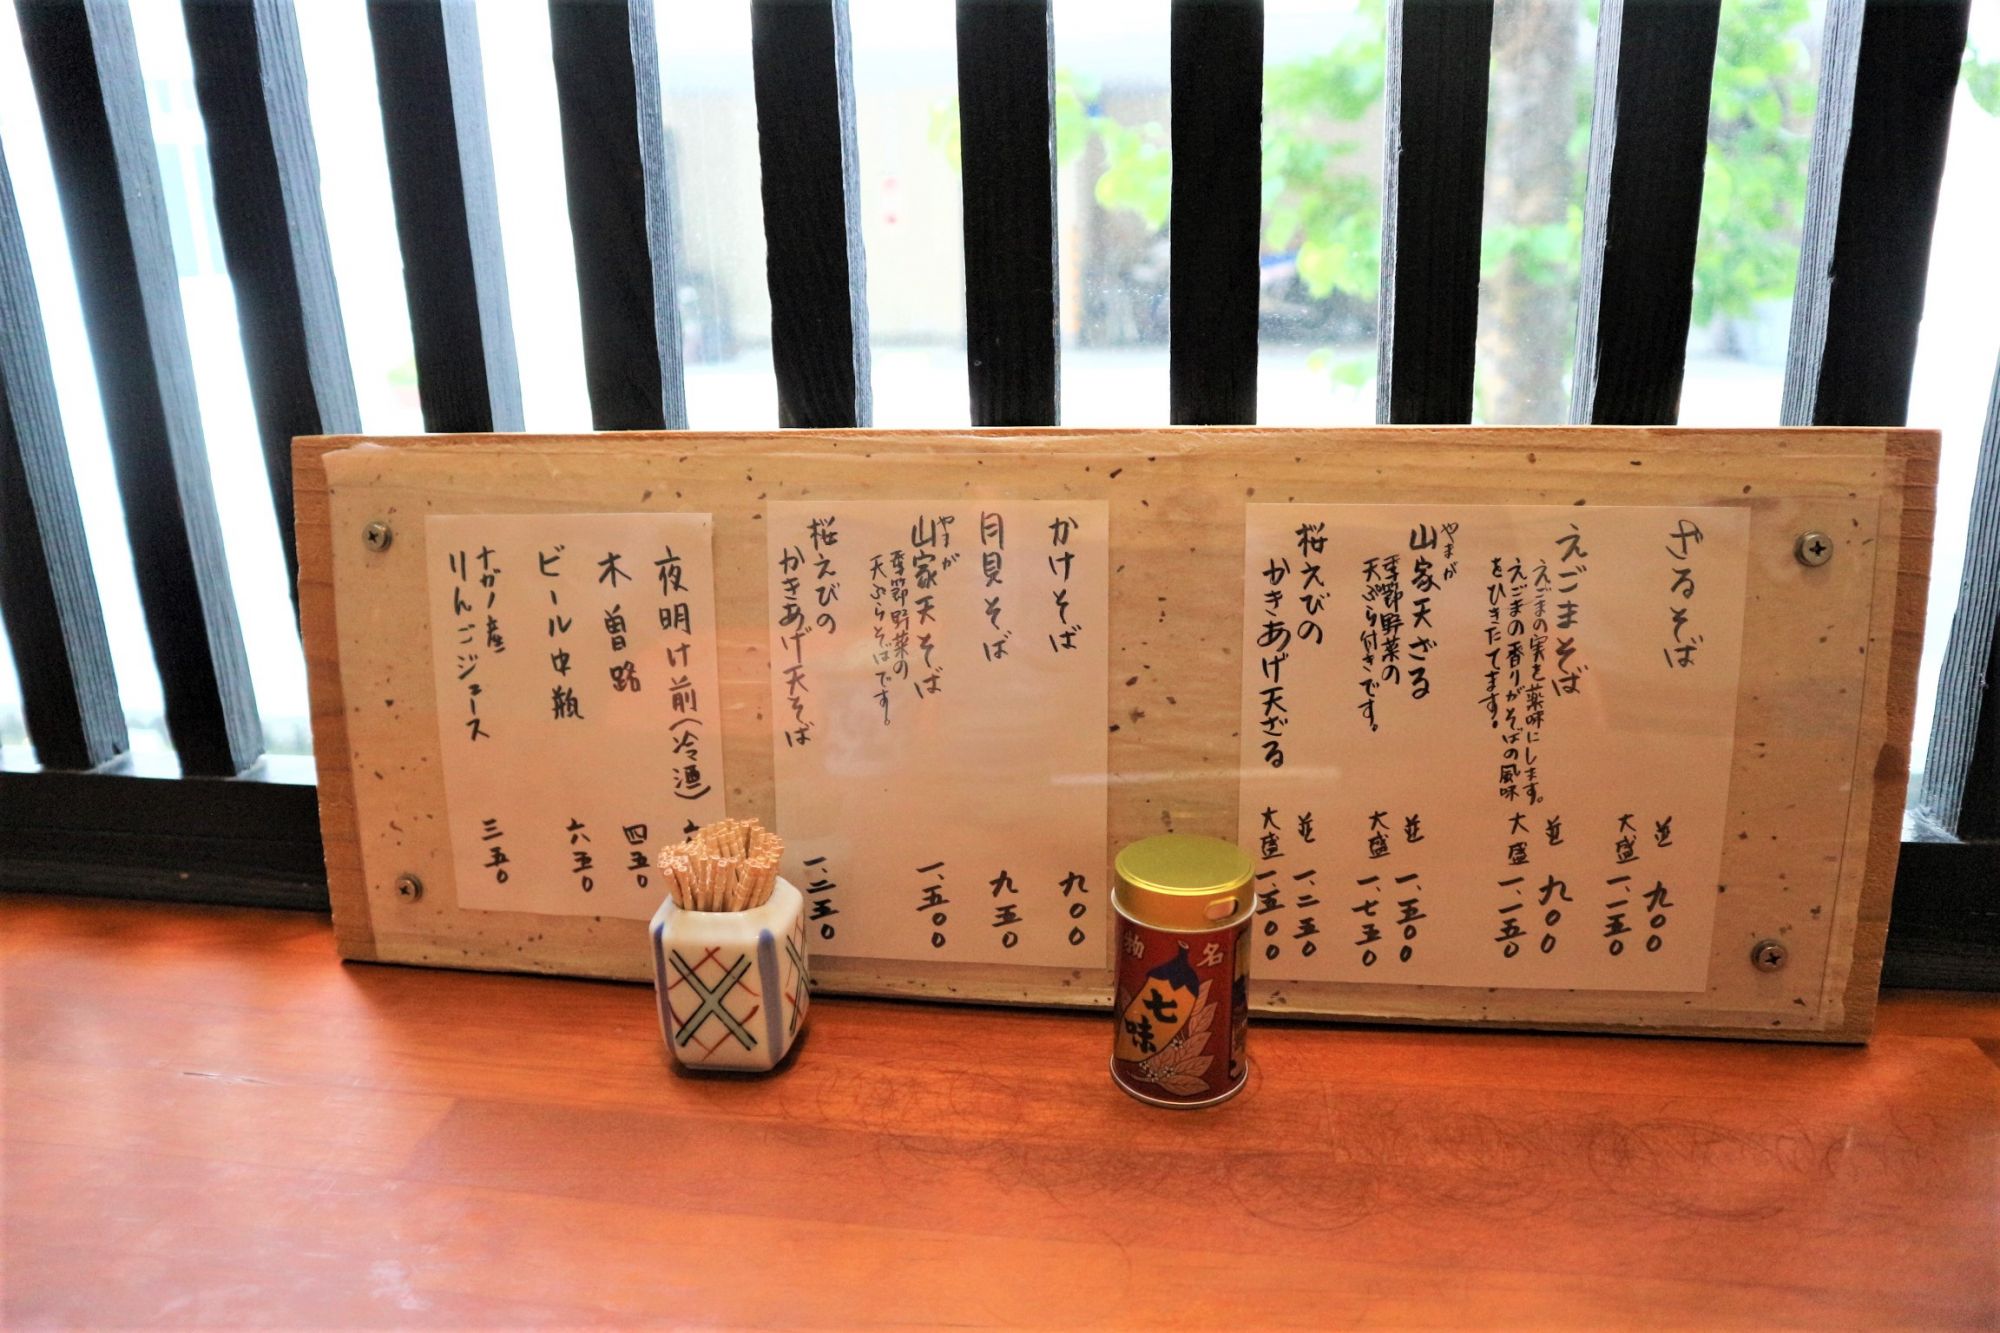 ざるそば
並 九〇〇
大盛 一、一五〇
えごまそば
えごまの実を薬味にします。
えごまの香りがそばの風味
をひきたてます。
並 九〇〇
大盛 一、一五〇
やまが
山家天ざる
季節野菜の
天ぷら付きです。
並 一、五〇〇
大盛 一、七五〇
桜えびの
かきあげ天ざる
並 一、二五〇
大盛 一、五〇〇
かけそば 九〇〇
月見そば 九五〇
やまが
山家天そば 一、五〇〇
季節野菜の
天ぷらそばです。
桜えびの
かきあげ天そば 一、二五〇
夜明け前(冷酒)
木曽路 四五〇
ビール中瓶 六五〇
ナガノ産
りんごジュース 三五〇
名物
七味